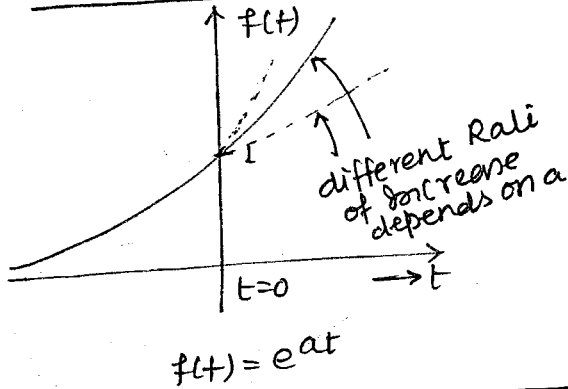 f(t)
1
different Rali
of Increase
depends on a
t=0
→ t
f(t) = e^at